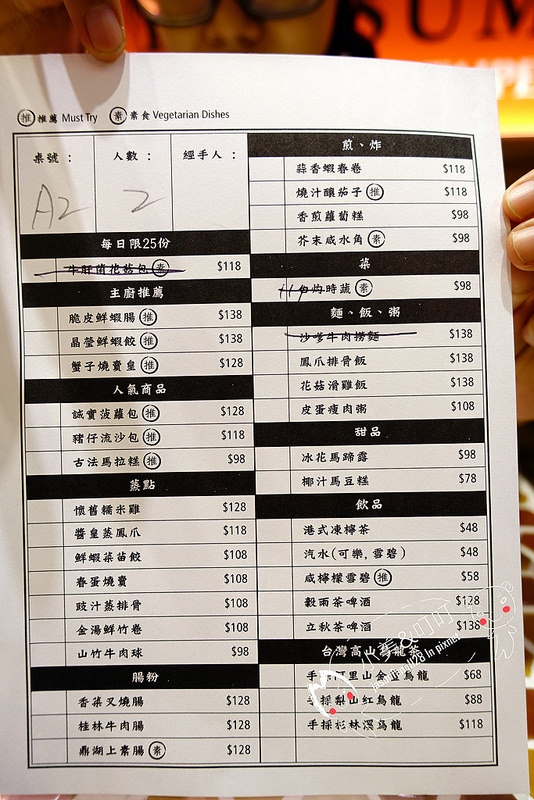 SUM
推 推薦 Must Try 素 素食 Vegetarian Dishes
桌號： 人數： 經手人：
A2 2
每日限25份
素 $118
主廚推薦
脆皮鮮蝦腸 推 $138
晶瑩鮮蝦餃 推 $138
蟹子燒賣皇 推 $128
人氣商品
誠實菠蘿包 推 $128
豬仔流沙包 推 $118
古法馬拉糕 推 $98
蒸點
懷舊糯米雞 $128
醬皇蒸鳳爪 $118
鮮蝦菜苗餃 $108
春蛋燒賣 $108
豉汁蒸排骨 $108
金湯鮮竹卷 $108
山竹牛肉球 $98
腸粉
香菜叉燒腸 $128
桂林牛肉腸 $128
鼎湖上素腸 素 $128
煎、炸
蒜香蝦春卷 $118
燒汁釀茄子 推 $118
香煎蘿蔔糕 $98
芥末咸水角 素 $98
菜
時蔬 素 $98
麵、飯、粥
沙爹牛肉撈麵 $138
鳳爪排骨飯 $138
花菇滑雞飯 $138
皮蛋瘦肉粥 $108
甜品
冰花馬蹄露 $98
椰汁馬豆糕 $78
飲品
港式凍檸茶 $48
汽水(可樂,雪碧) $48
咸檸檬雪碧 推 $58
穀雨茶啤酒 $128
立秋茶啤酒 $138
台灣高山烏龍茶
手採阿里山金萱烏龍 $68
手採梨山紅烏龍 $88
手採杉林溪烏龍 $118
小美&叮叮